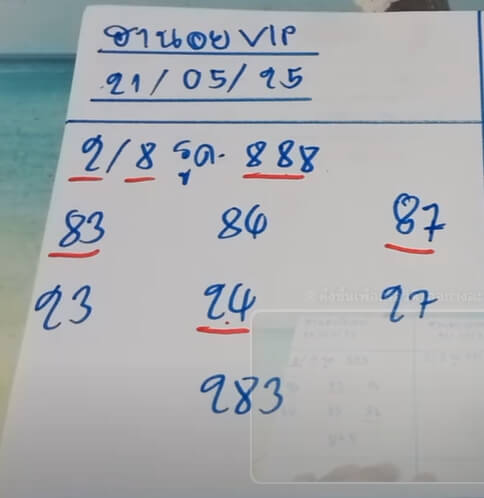 ฮานอย VIP
21/05/25
2/8 รูด. 888
83 84 87
23 24 27
283